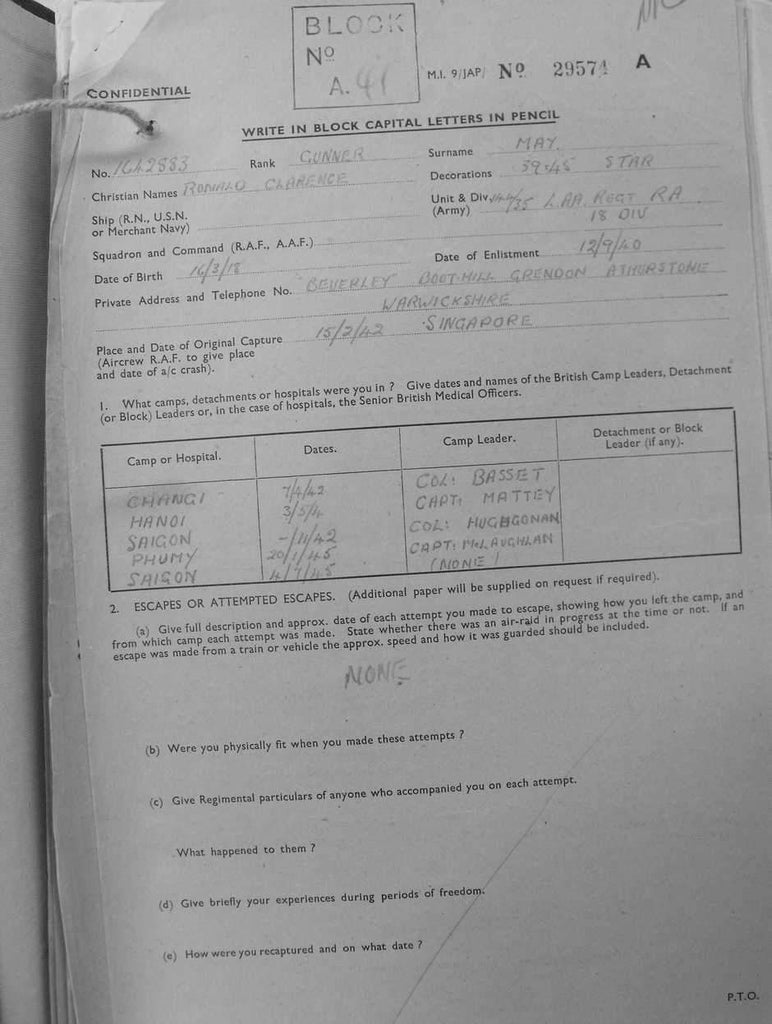 BLOCK
Nº
A. 41
M.I. 9/JAP/ Nº 29574 A
CONFIDENTIAL
WRITE IN BLOCK CAPITAL LETTERS IN PENCIL
No. 1642883 Rank GUNNER Surname MAY
Christian Names RONALD CLARENCE Decorations 39-45 STAR
Ship (R.N., U.S.N. or Merchant Navy)
Unit & Div. (Army) 144/35 L.AA. REGT RA
18 DIV
Squadron and Command (R.A.F., A.A.F.)
Date of Birth 16/3/18 Date of Enlistment 12/9/40
Private Address and Telephone No. BEVERLEY BOOT-HILL GRENDON ATHERSTONE
WARWICKSHIRE
Place and Date of Original Capture 15/2/42 SINGAPORE
(Aircrew R.A.F. to give place
and date of a/c crash).
1. What camps, detachments or hospitals were you in ? Give dates and names of the British Camp Leaders, Detachment
(or Block) Leaders or, in the case of hospitals, the Senior British Medical Officers.
Camp or Hospital. Dates. Camp Leader. Detachment or Block Leader (if any).
CHANGI 7/4/42 COL: BASSET
HANOI 3/5/4 CAPT: MATTEY
SAIGON -/11/42 COL: HUGHGONAN
PHUMY 20/1/45 CAPT: McLAUGHLAN
SAIGON 4/7/45 (NONE)
2. ESCAPES OR ATTEMPTED ESCAPES. (Additional paper will be supplied on request if required).
(a) Give full description and approx. date of each attempt you made to escape, showing how you left the camp, and
from which camp each attempt was made. State whether there was an air-raid in progress at the time or not. If an
escape was made from a train or vehicle the approx. speed and how it was guarded should be included.
NONE
(b) Were you physically fit when you made these attempts ?
(c) Give Regimental particulars of anyone who accompanied you on each attempt.
What happened to them ?
(d) Give briefly your experiences during periods of freedom.
(e) How were you recaptured and on what date ?
P.T.O.